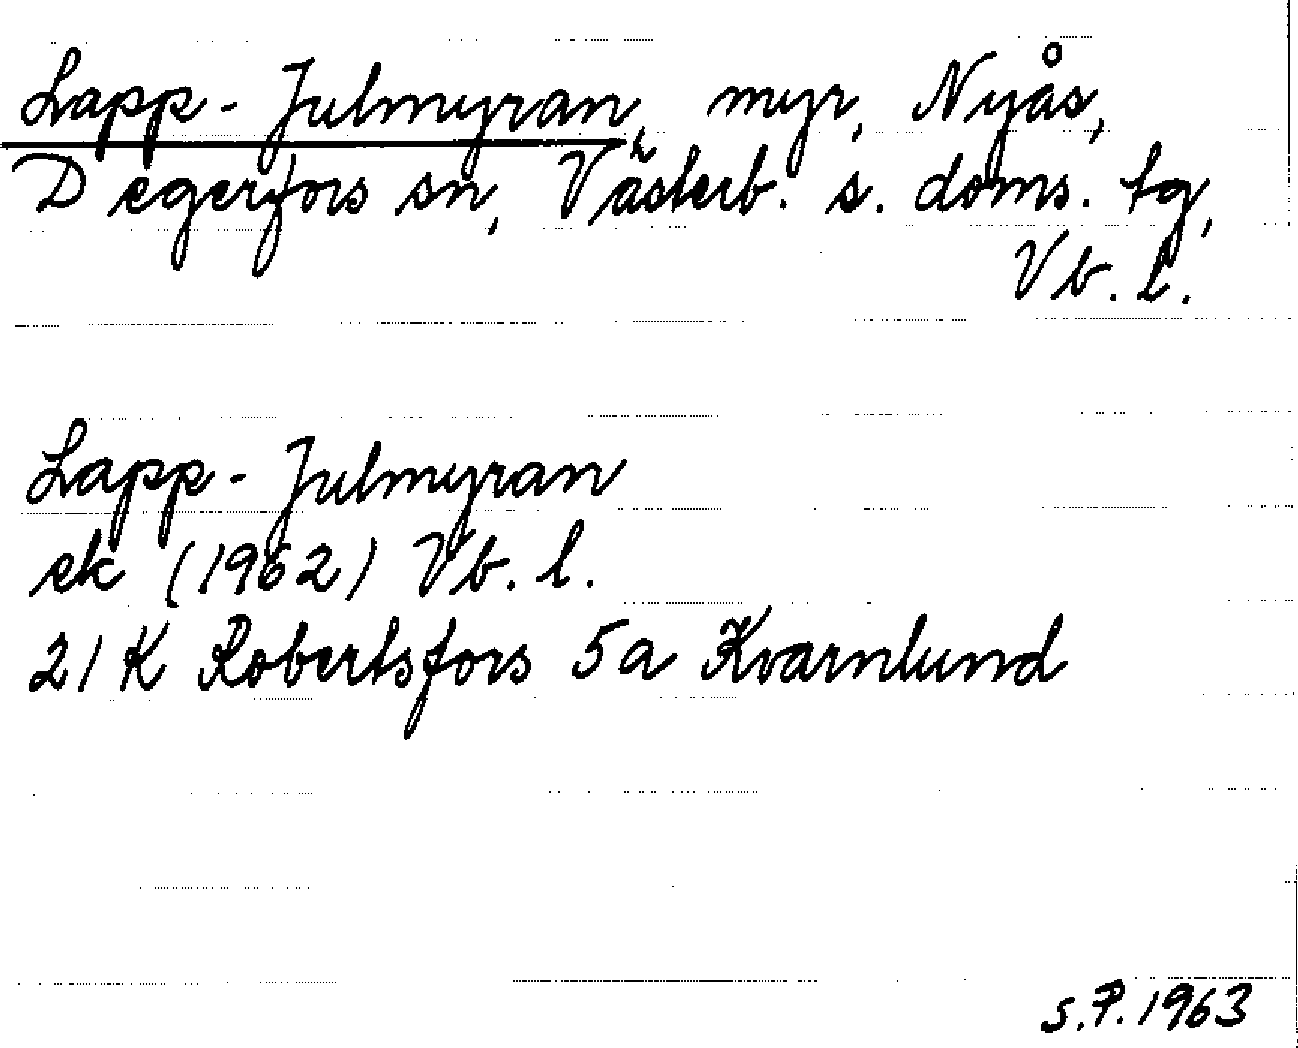 Lapp-Julmyran, myr, Nyås,
Degerfors sn, Västerb. s. doms. tg,
Vb. l.
Lapp-Julmyran
ek (1962) Vb. l.
21K Robertsfors 5a Kvarnlund
S.P. 1963